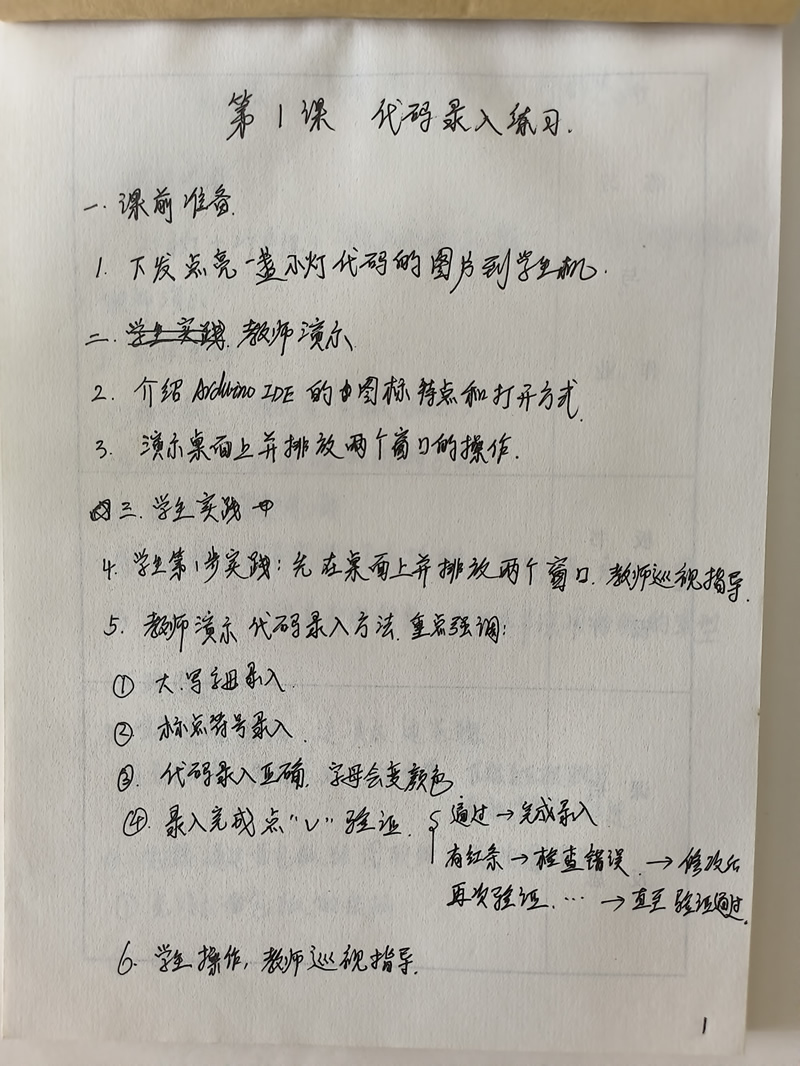 第1课 代码录入练习.
一. 课前准备.
1. 下发点亮一盏小灯代码的图片到学生机.
二. 学生实践. 教师演示.
2. 介绍 Arduino IDE 的图标特点和打开方式.
3. 演示桌面上并排放两个窗口的操作.
三. 学生实践
4. 学生第1步实践: 先在桌面上并排放两个窗口. 教师巡视指导.
5. 教师演示代码录入方法. 重点强调:
① 大.写字母录入.
② 标点符号录入.
③. 代码录入正确. 字母会变颜色
④. 录入完成点"√"验证. 通过→完成录入
有红条→检查错误. →修改后
再次验证. … →直至验证通过.
6. 学生操作, 教师巡视指导.
1